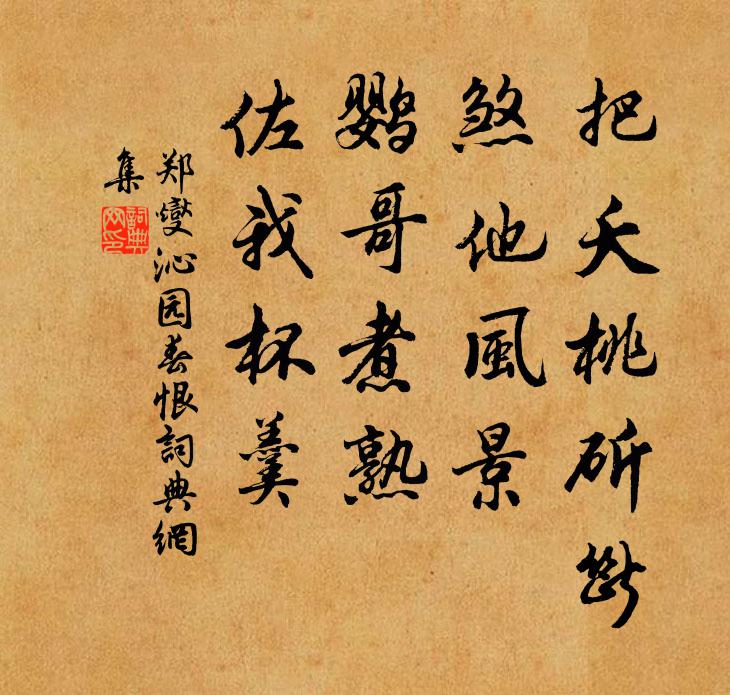 把夭桃斫斷
煞他風景
鹦哥煮熟
佐我杯羹
郑燮沁园春恨詞典網
集
詞典網印